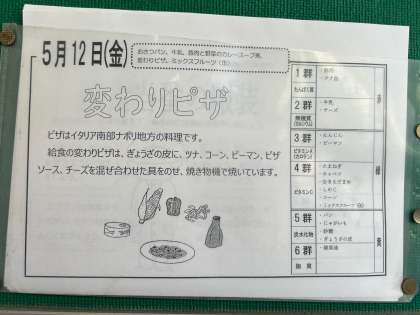 5月12日(金)
おさつパン、牛乳、豚肉と野菜のカレースープ煮、
変わりピザ、ミックスフルーツ(缶)
変わりピザ
ピザはイタリア南部ナポリ地方の料理です。
給食の変わりピザは、ぎょうざの皮に、ツナ、コーン、ピーマン、ピザ
ソース、チーズを混ぜ合わせた具をのせ、焼き物機で焼いています。
1 群
たんぱく質
・豚肉
・ツナ缶
赤
2 群
無機質
(カルシウム)
・牛乳
・チーズ
3 群
ビタミンA
(カロテン)
・にんじん
・ピーマン
緑
4 群
ビタミンC
・たまねぎ
・キャベツ
・しめじ
・コーン
・ミックスフルーツ
5 群
炭水化物
・パン
・じゃがいも
・砂糖
・ぎょうざの皮
黄
6 群
脂質